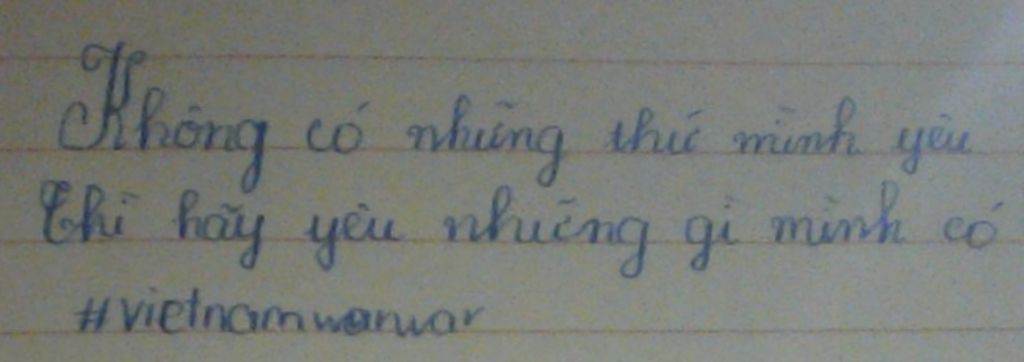 Không có những thứ mình yêu
Thì hãy yêu những gì mình có
#vietnamwarwar